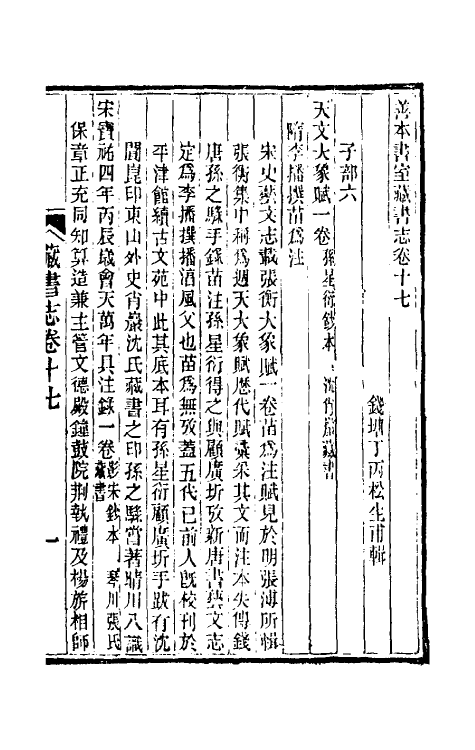 善本書室藏書志卷十七
錢塘丁丙松生甫輯
子部六
天文大象賦一卷 孫星衍鈔本 沈肖巖藏書
隋李播撰苗爲注
宋史藝文志載張衡大象賦一卷苗爲注賦見於明張溥所輯
張衡集中稱爲週天大象賦歷代賦彙采其文而注本失傳錢
唐孫之騄手錄苗注孫星衍得之與顧廣圻攷新唐書藝文志
定爲李播撰播淳風父也苗爲無攷蓋五代已前人旣校刊於
平津館續古文苑中此其底本耳有孫星衍顧廣圻手跋有沈
閬崑印東山外史肖巖沈氏藏書之印孫之騄嘗著晴川八識
宋寶祐四年丙辰歲會天萬年具注錄一卷 影宋鈔本 琴川張氏藏書
保章正充同知算造兼主管文德殿鐘鼓院荆執禮及楊旂相師
藏書志卷十七
一